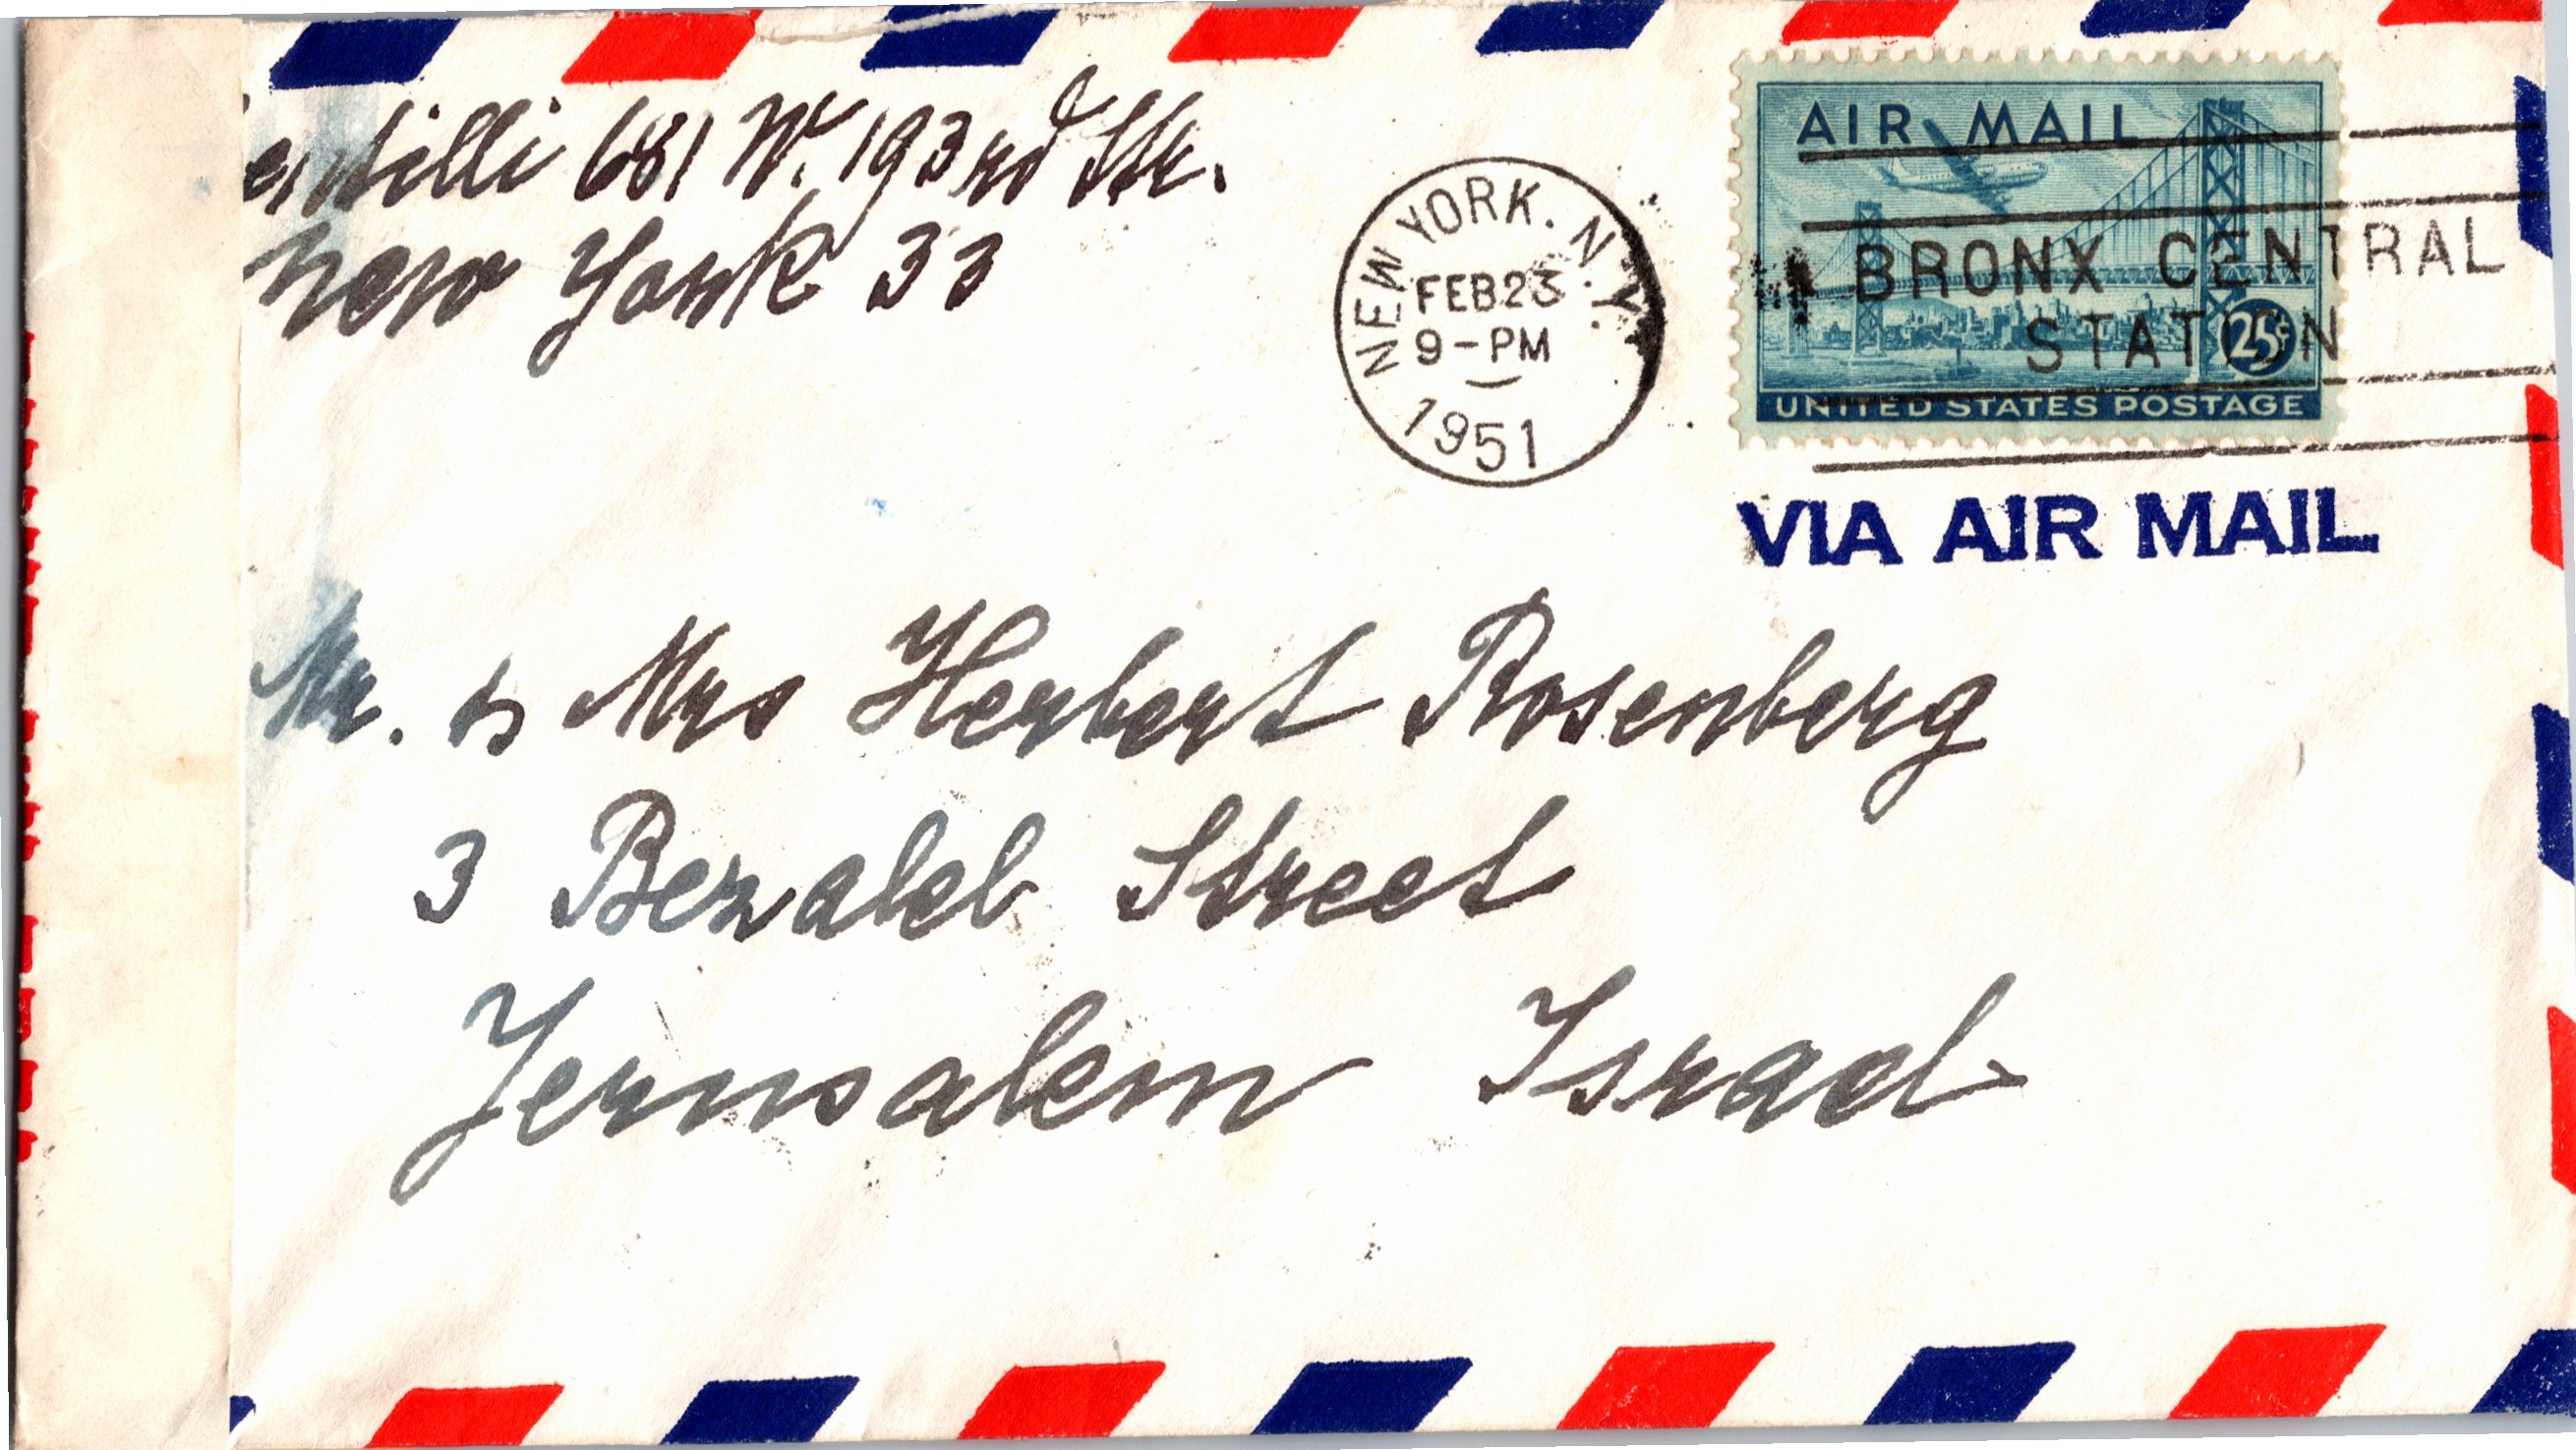 681 W. 193rd Str.
New York 33
NEW YORK. N.Y.
FEB 23
9-PM
1951
AIR MAIL
BRONX CENTRAL
STATION
25¢
UNITED STATES POSTAGE
VIA AIR MAIL
Mr. & Mrs Herbert Rosenberg
3 Bezalel Street
Jerusalem Israel